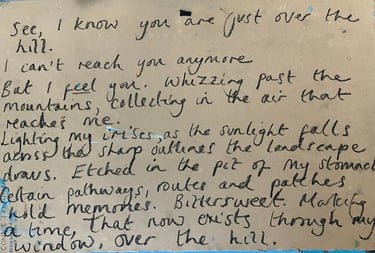 See, I know you are just over the
hill.
I can't reach you anymore.
But I feel you. Whizzing past the
mountains, collecting in the air that
reaches me.
Lighting my irises as the sunlight falls
across the sharp outlines the landscape
draws. Etched in the pit of my stomach
Certain pathways, routes and patches
hold memories. Bittersweet. Marking
a time, that now exists through my
window, over the hill.